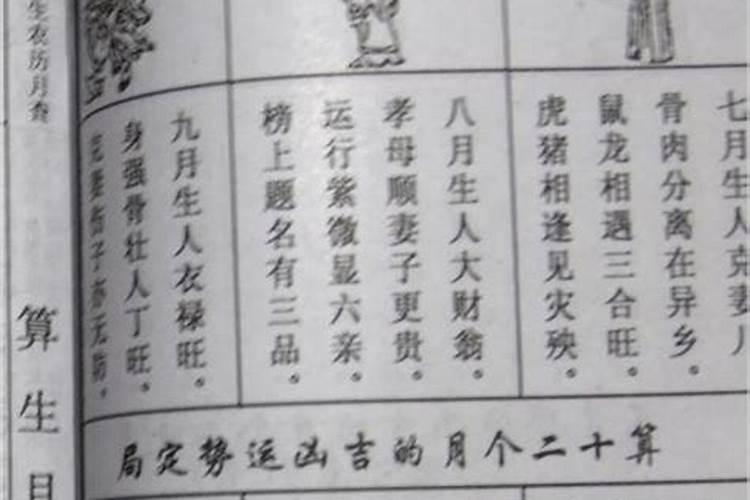 七月生人克妻儿
骨肉分离在异乡。
鼠龙相遇三合旺。
虎猪相逢见灾殃。
八月生人大财翁。
孝母顺妻子更贵。
运行紫微显六亲。
榜上题名有三品。
九月生人衣禄旺。
身强骨壮人丁旺。
克妻伤子亦无妨。
算十二个月的吉凶运势定局
生农历月查
算生日